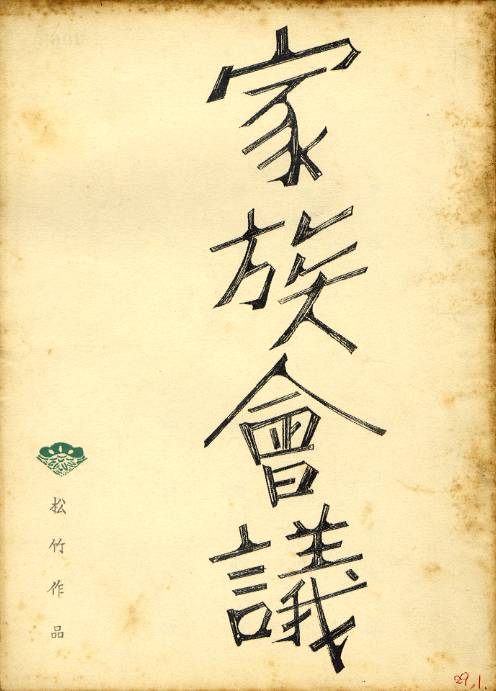 家族會議
松竹作品
29.1.